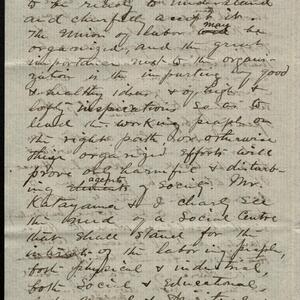 to be ready to understand
and cheerfully accept it.
The Union of labor may be
organized, and the great
importance next to the organi-
zation is the imparting of good
& healthy ideas & of high &
lofty inspiration so as to
lead the working people on
the right path, for otherwise
their organized efforts will
prove only harmful & disturb-
ing agents of society. Mr.
Katayama & I clearly see
the need of a Social Centre
that shall stand for the
interests of the laboring people,
both physical & industrial,
both Social & Educational,